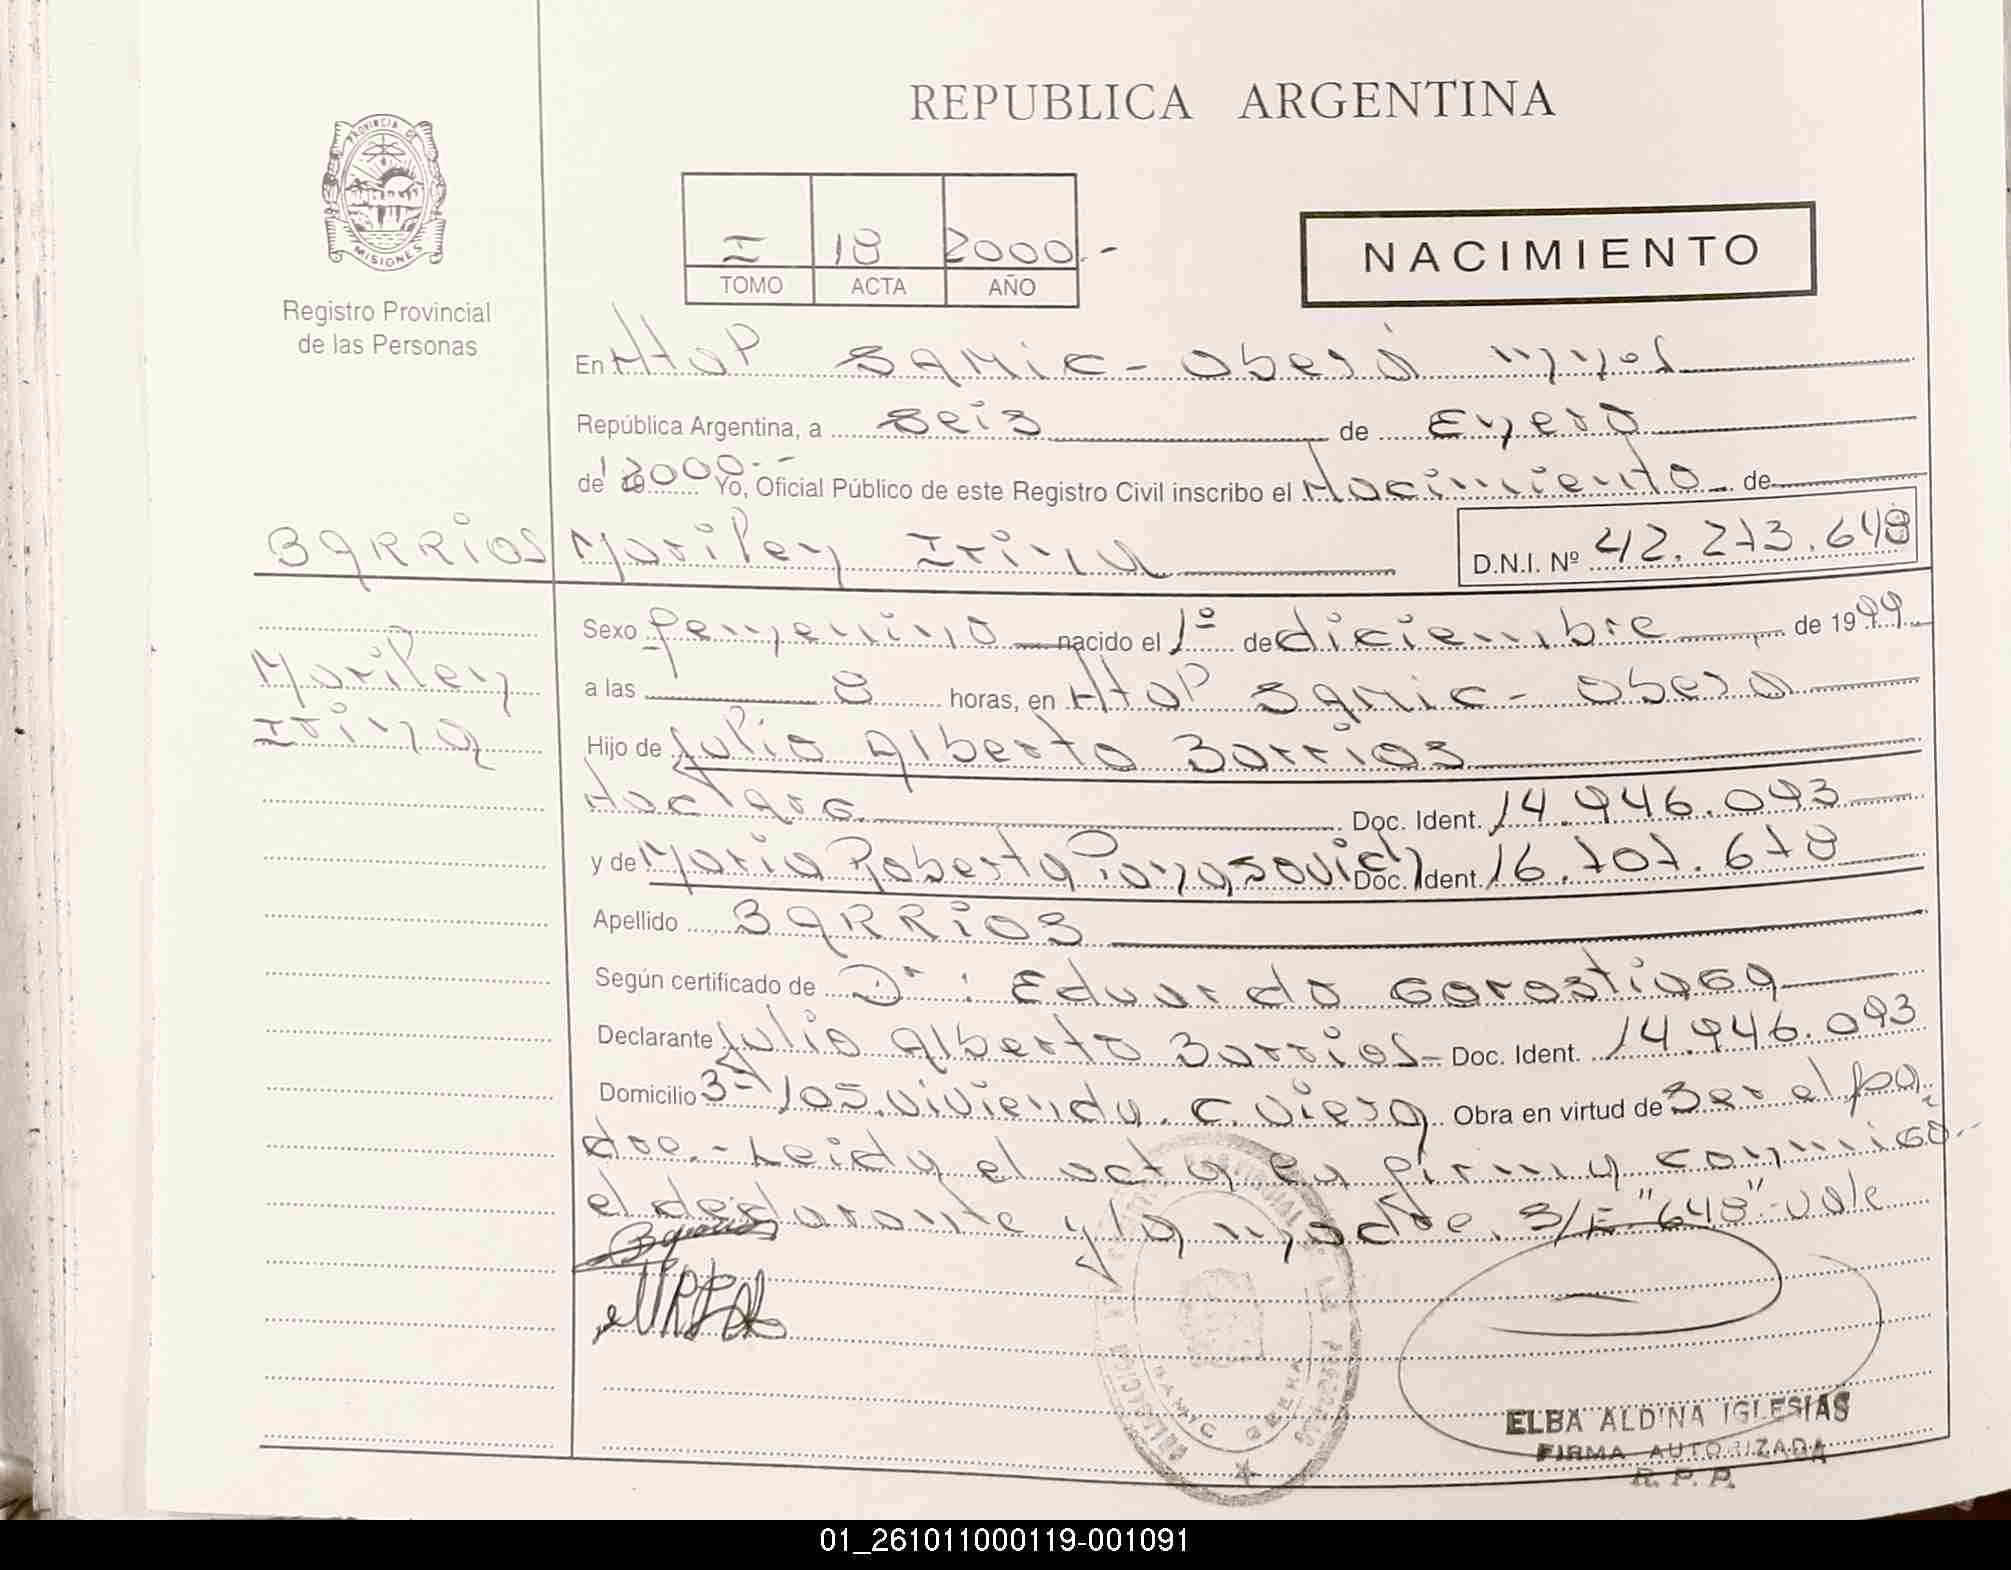 REPUBLICA ARGENTINA
PROVINCIA DE MISIONES
Registro Provincial
de las Personas
I 18 2000.-
TOMO ACTA AÑO
NACIMIENTO
En Htop Samic - Oberá Mnes
República Argentina, a seis de Enero
de 19 2000.- Yo, Oficial Público de este Registro Civil inscribo el Nacimiento de
BARRIOS Mariley Irina D.N.I. Nº 42.273.648
Mariley
Irina
Sexo femenino nacido el 1º de diciembre de 1999
a las 8 horas, en Htop Samic - Oberá
Hijo de Julio Alberto Barrios
Doc. Ident. 14.946.093
y de Maria Roberta Doc. Ident. 16.707.678
Apellido BARRIOS
Según certificado de Dr: Eduardo Gorostiaga
Declarante Julio Alberto Barrios - Doc. Ident. 14.946.093
Domicilio 105 vivienda. C. Viera Obra en virtud de ser el pa
dre.- Leida el acta la firma conmigo
el declarante y la madre. S/E "648"-vale
Barrios
SAMIC OBERA
ELBA ALDINA IGLESIAS
FIRMA AUTORIZADA
R. P. P.
01_261011000119-001091